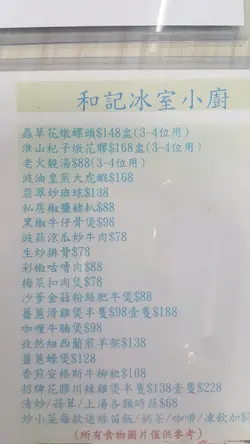 和記冰室小廚
蟲草花燉螺頭$148盅(3-4位用)
淮山杞子燉花膠$168盅(3-4位用)
老火靚湯$88(3-4位用)
豉油皇煎大虎蝦$168
翡翠炒班球$138
私房椒鹽豬扒$88
黑椒牛仔骨煲$98
豉蒜涼瓜炒牛肉$78
生炒排骨$78
彩椒咕嚕肉$88
梅菜扣肉煲$78
沙爹金菇粉絲肥牛煲$88
薑蔥滑雞煲半隻$98壹隻$188
咖喱牛腩煲$98
孜然紐西蘭煎羊架$138
薑蔥蠔煲$128
香煎安格斯牛柳粒$108
招牌花膠川辣雞煲半隻$138壹隻$228
清炒/蒜茸/上湯各類時蔬$68
炒小菜每款送絲苗飯/奶茶/咖啡/凍飲加$
(所有食物圖片僅供參考)